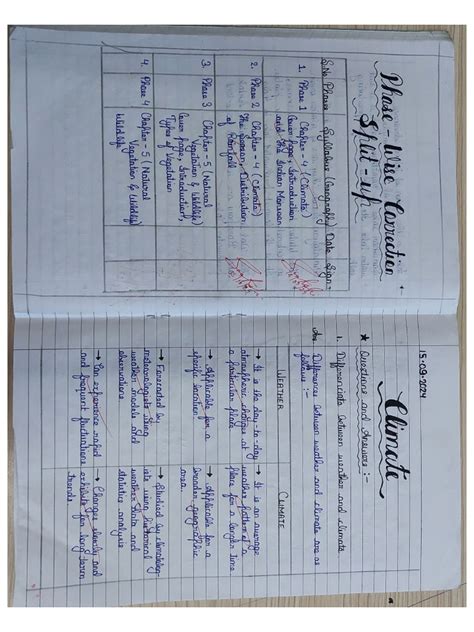 Phase - Wise Correction
Split - up
S.No Phase Syllabus (Geography) Date Sign.
1. Phase 1 Chapter - 4 (Climate)
Cover page, Introduction
and the Indian Monsoon
2. Phase 2 Chapter - 4 (Climate)
The Season, Distribution
of Rainfall
3. Phase 3 Chapter - 5 (Natural
Vegetation & Wildlife)
Cover page, Introduction,
Types of Vegetation
4. Phase 4 Chapter - 5 (Natural
Vegetation & Wildlife)
Wildlife
15.09.2024
Climate
★ Questions and Answers :-
1. Differentiate between weather and climate.
Ans Differences between weather and climate are as
follows :-
WEATHER CLIMATE
→ It is the day-to-day → It is an average
atmospheric change at weather pattern of a
a particular place place for a longer time
→ Applicable for a → Applicable for a
specific location broader geographic
area
→ Forecasted by → Studied by climatolog-
meteorologists using ists using historical
weather models and weather data and
observations statistics analysis
→ Can experience rapid → Changes slowly and
and frequent fluctuations for long term
trends